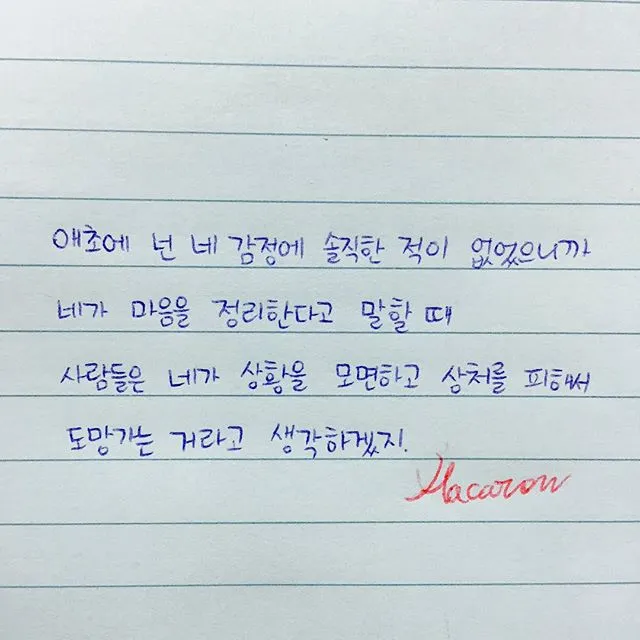 애초에 넌 네 감정에 솔직한 적이 없었으니까
네가 마음을 정리한다고 말할 때
사람들은 네가 상황을 모면하고 상처를 피해서
도망가는 거라고 생각하겠지.
Macaron